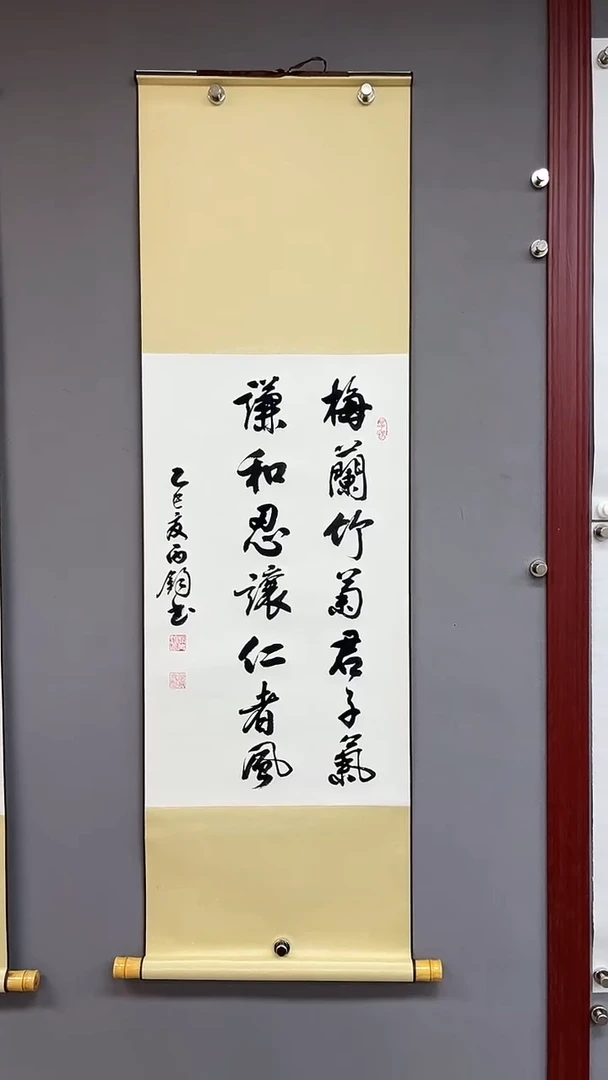 梅蘭竹菊君子氣
謙和忍讓仁者風
乙巳夏丙鈞书